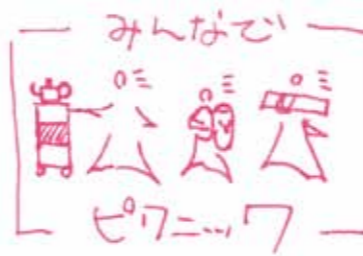 みんなで
ピクニック